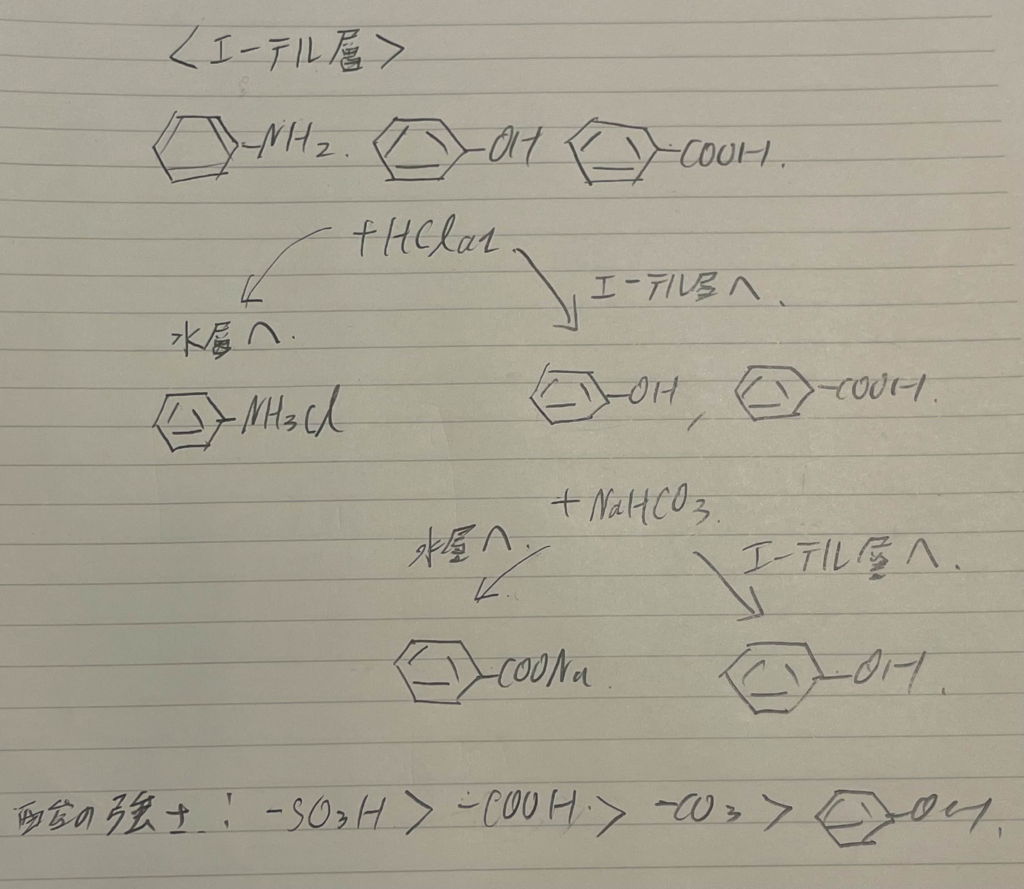 <エーテル層>
-NH2. -OH -COOH.
+HClaq.
エーテル層へ.
水層へ.
-NH3Cl -OH, -COOH.
+NaHCO3.
水層へ. エーテル層へ.
-COONa. -OH.
酸の強さ: -SO3H > -COOH. > -CO3 > -OH.